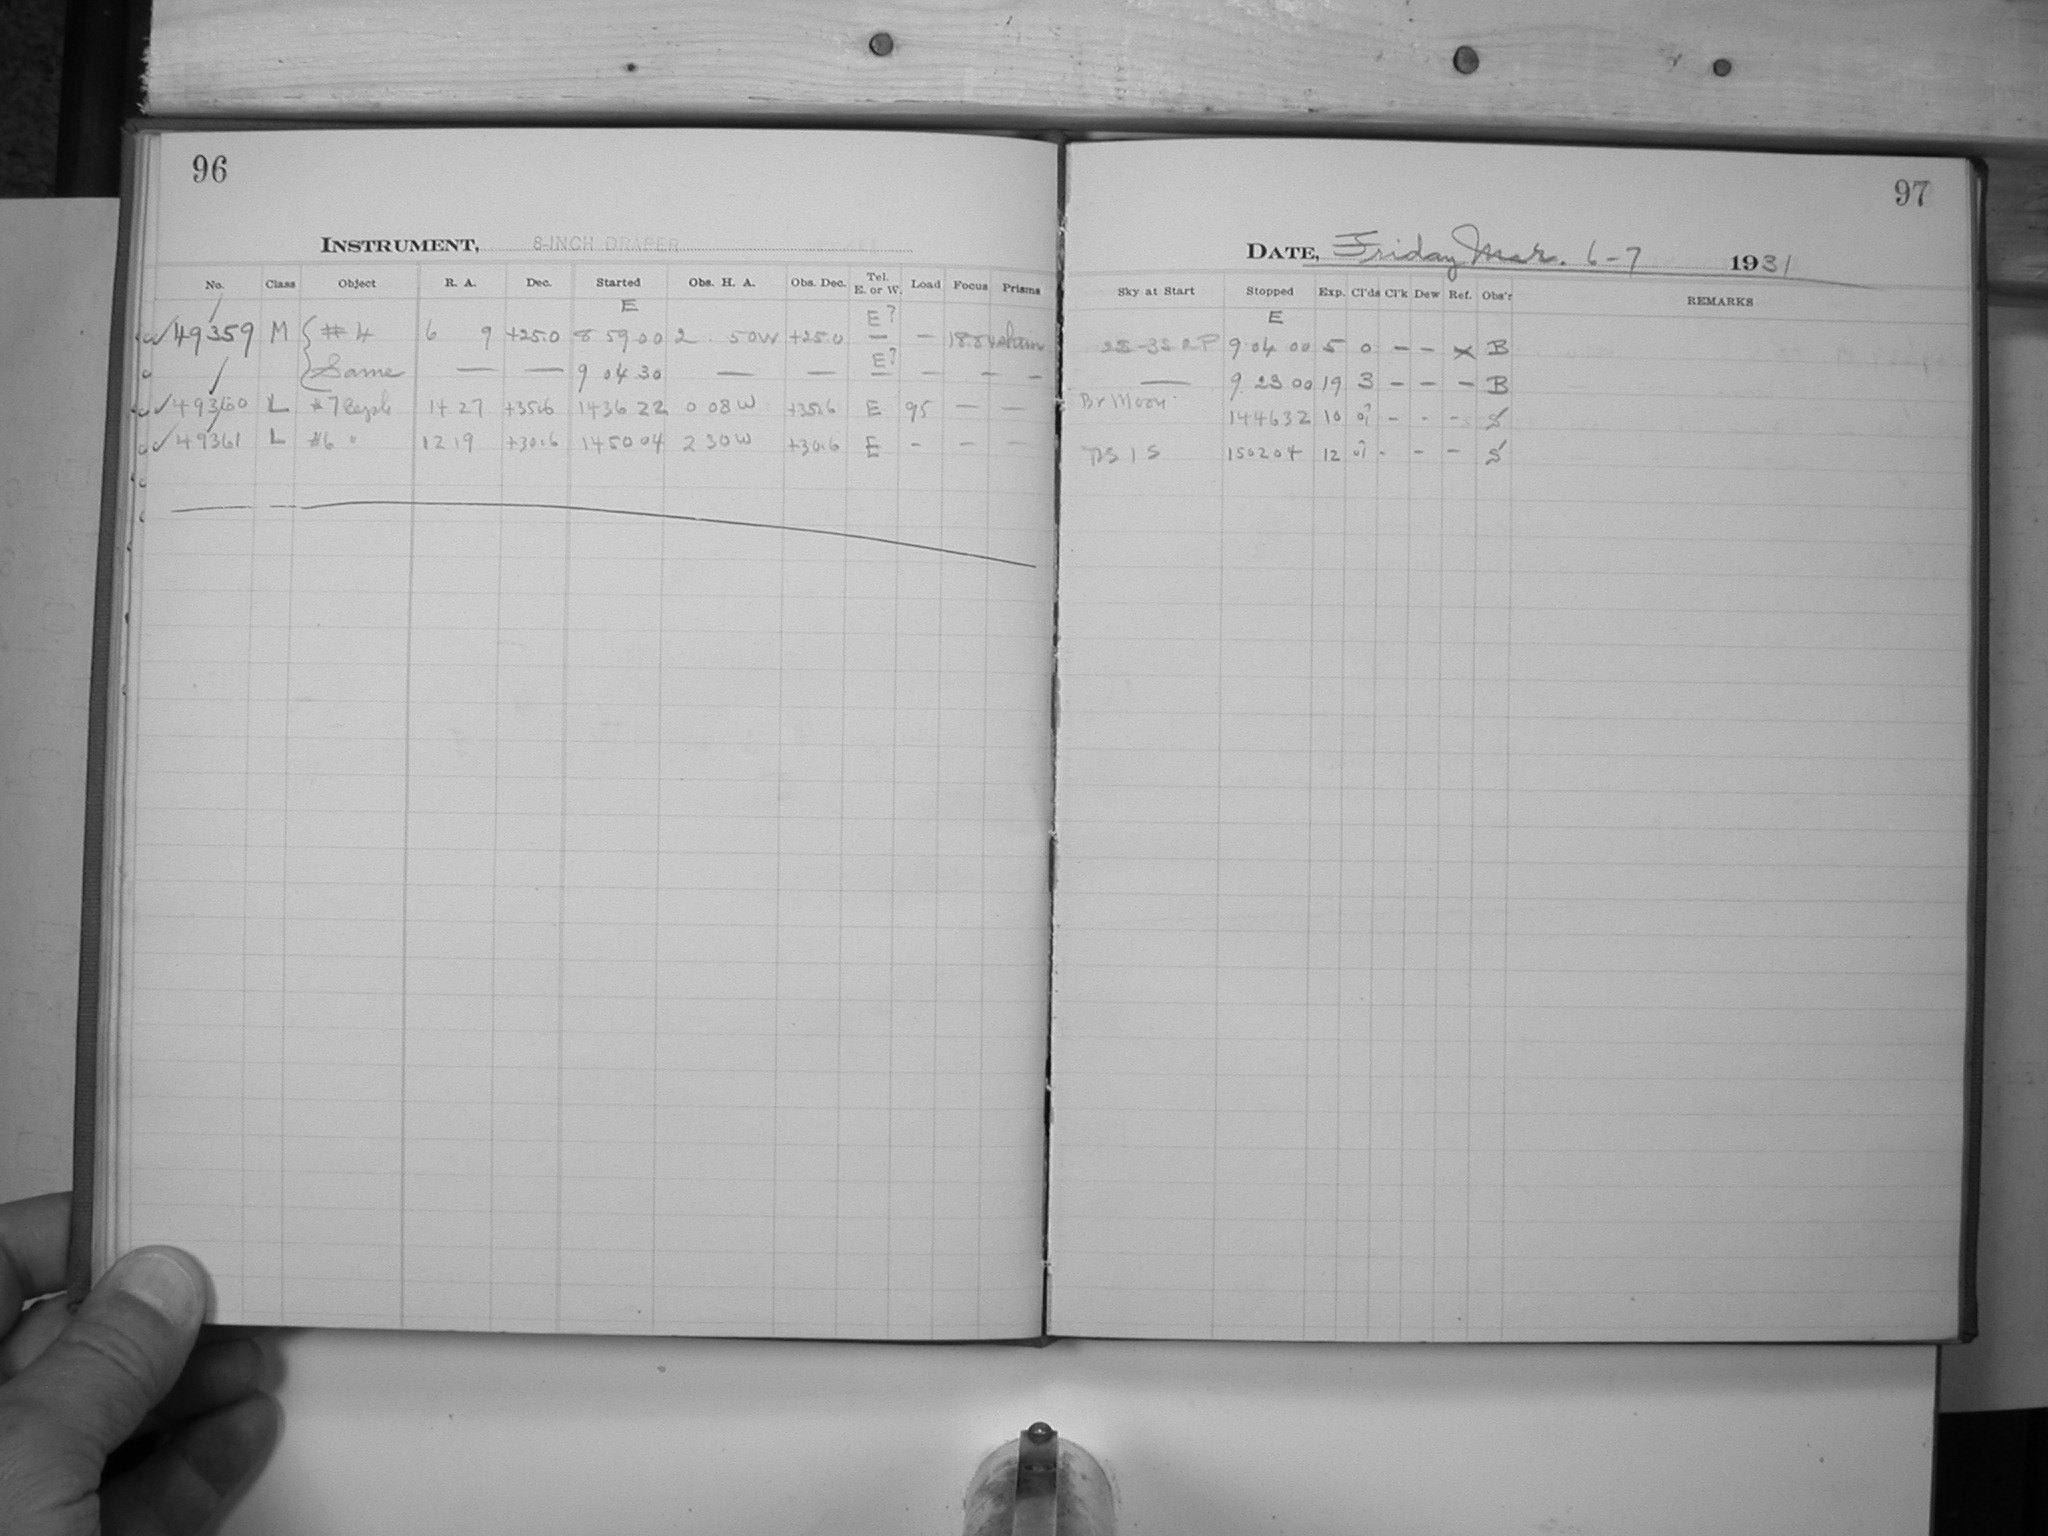 96
INSTRUMENT, 8-INCH DRAPER
No. Class Object R. A. Dec. Started Obs. H. A. Obs. Dec. Tel. E. or W. Load Focus Prisms
E
49359 M #4 6 9 +25.0 8 59 00 2 50W +25.0 E? — —
Same — — 9 04 30 — — E? — — — —
49360 L #7 14 27 +35.6 14 36 22 0 08W +35.6 E 95 — —
49361 L #6 " 12 19 +30.6 14 50 04 2 30W +30.6 E - - -
97
DATE, Friday Mar. 6-7 1931
Sky at Start Stopped Exp. Cl'ds Cl'k Dew Ref. Obs'r REMARKS
E
9 04 00 5 0 — — x B
— 9 23 00 19 3 — — — B
Br Moon 14 46 32 10 - - - S
15 02 04 12 - - - S